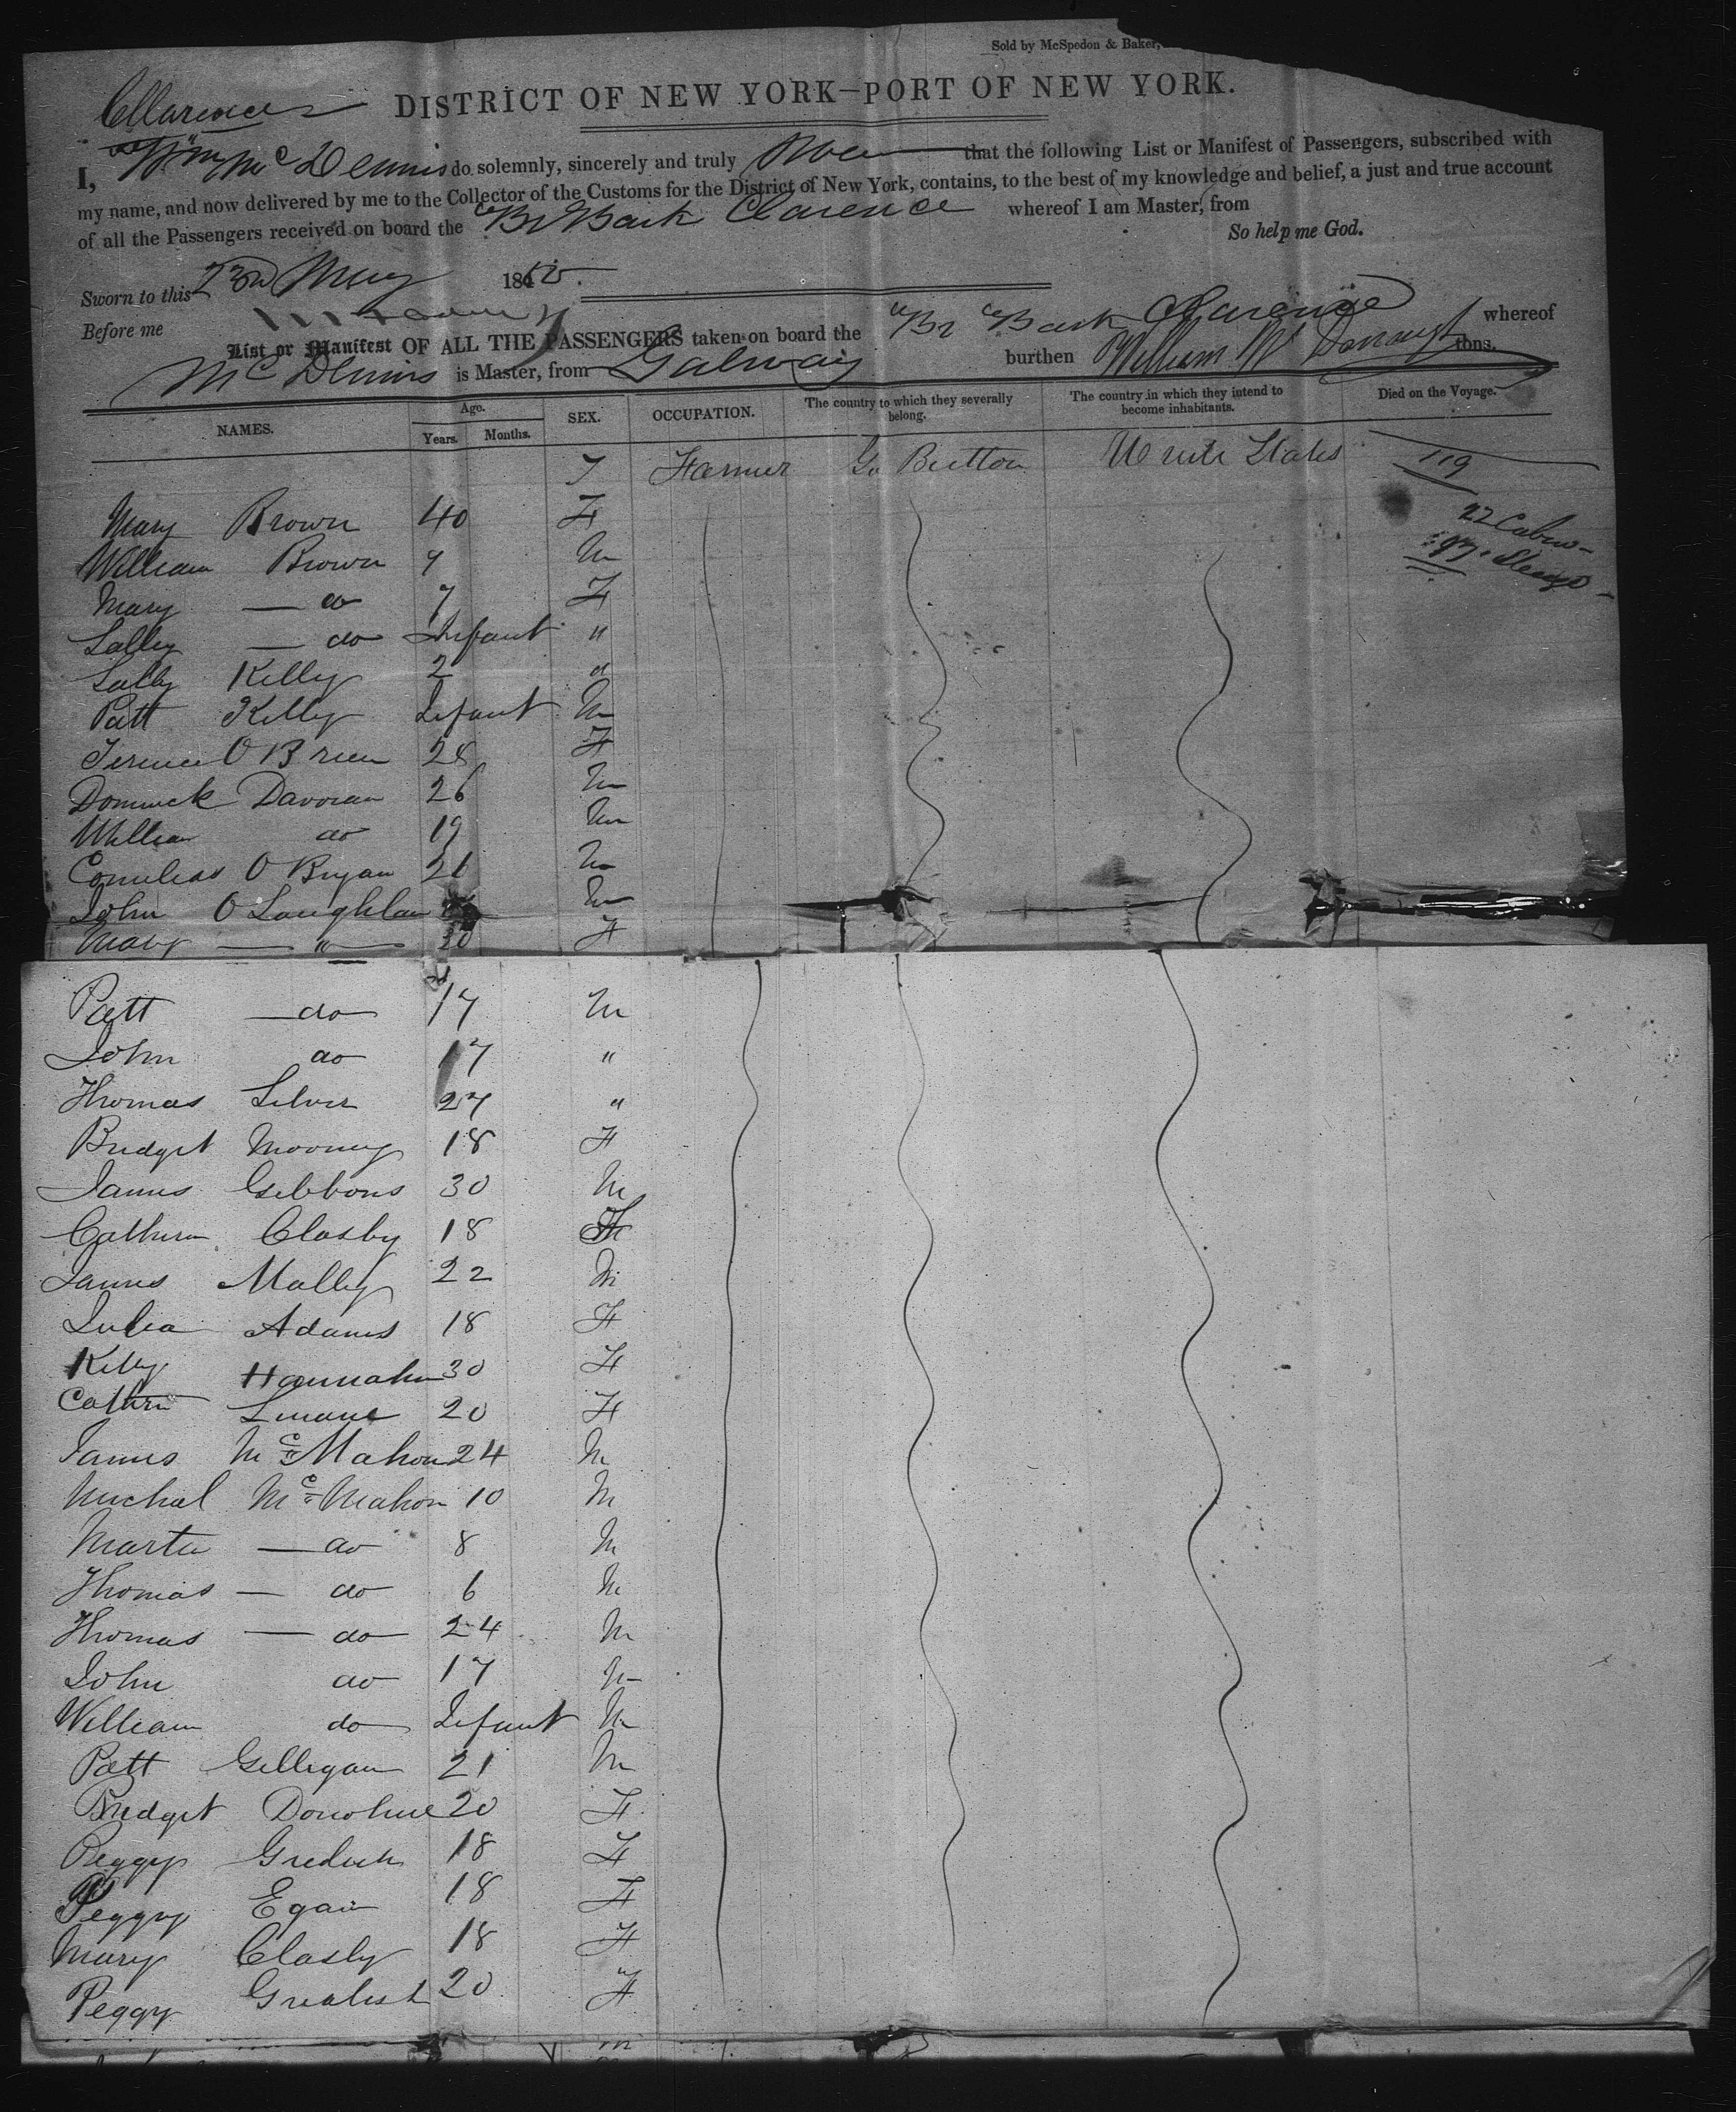 Sold by McSpedon & Baker,
Clarence
DISTRICT OF NEW YORK—PORT OF NEW YORK.
I, Wm Mc Dennis do solemnly, sincerely and truly that the following List or Manifest of Passengers, subscribed with
my name, and now delivered by me to the Collector of the Customs for the District of New York, contains, to the best of my knowledge and belief, a just and true account
of all the Passengers received on board the Br Bark Clarence whereof I am Master, from
So help me God.
Sworn to this 23rd May 18450
Before me
List or Manifest OF ALL THE PASSENGERS taken on board the Br Bark Clarence whereof
Mc Dennis is Master, from Galway burthen William Mc tons.
NAMES. Age. Years. Months. SEX. OCCUPATION. The country to which they severally belong. The country in which they intend to become inhabitants. Died on the Voyage.
Farmer Gr Britton States 119
Mary Brown 40 F
22 Cabin
William Brown 9 M
97
Mary — do 7 F
Salley — do Infant "
Sally Kelly 2
Patt Kelly Infant M
Terence O Brien 28 F
Dominick Davoran 26 M
William do 19 M
Cornelius O Bryan 21 M
John O Laughlan M
Mary — " — 20 F
Patt — do 17 M
John do 17 "
Thomas Silver 27 "
Bridget Mooney 18 F
James Gibbons 30 M
Cathern Clasby 18 F
James Mally 22 M
Julia Adams 18 F
Kitty Hannahn 30 F
Cathrn Linane 20 F
James Mc Mahon 24 M
Michal Mc Mahon 10 M
Martn — do 8 M
Thomas — do 6 M
Thomas — do 24 M
John do 17 M
William do Infant M
Patt Gilligan 21 M
Bridget Donohue 20 F
Peggy 18 F
Peggy Egan 18 F
Mary Clasby 18 F
Peggy Grealish 20 F